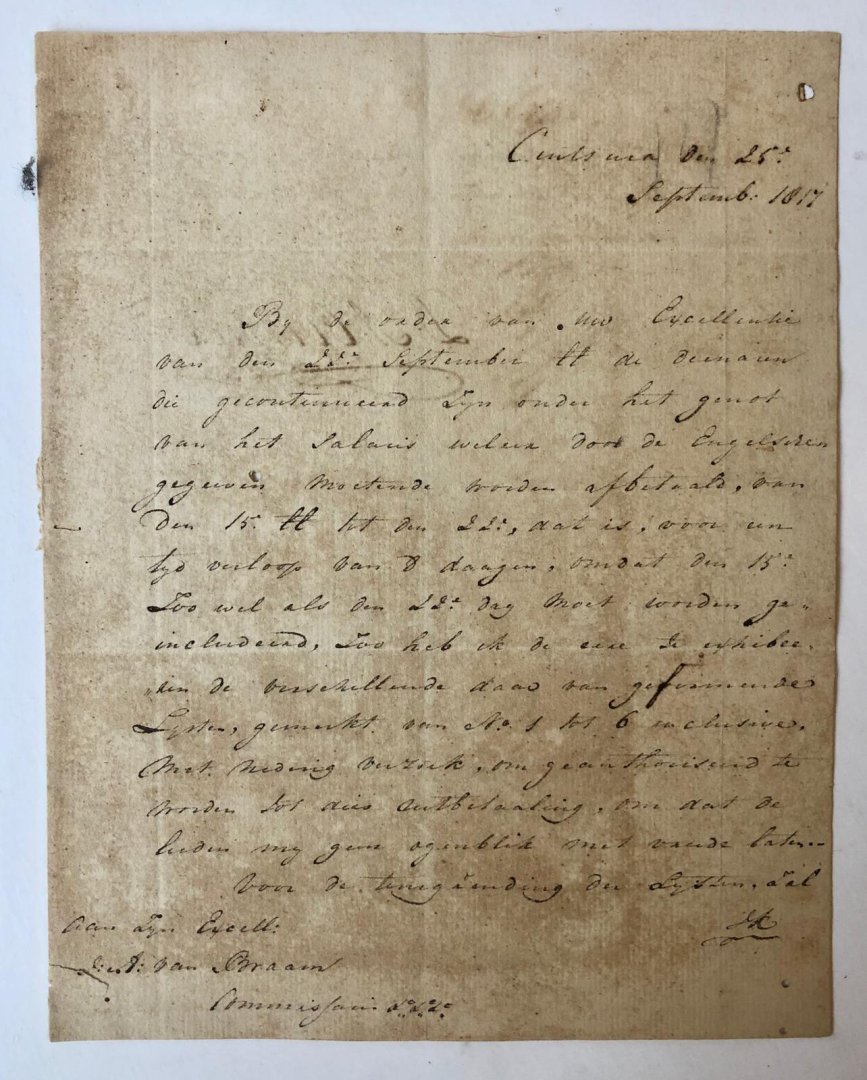 den 25e
Septemb: 1817
By de orden van Uw Excellentie
van den 22e September ll de dienaren
die gecontinueerd zyn onder het genot
van het Salaris welken door de Engelschen
gegeeven moetende worden afbetaald, van
den 15. ll tot den 22e, dat is, voor een
tyd verloop van 8 daagen, omdat den 15e
Zoo wel als den 22e dag moet worden ge„
includeerd, Zoo heb ik de eere te exhibee„
„ren de verschillende daar van geformeerde
Lysten, gemerkt van No. 1 tot 6 inclusive,
Met nedrig verzoek, om geauthoriseerd te
worden tot dies uitbetaaling, om dat de
lieden my geen ogenblik met vreede laten.
Voor de terugzending der Lysten, zal
ik
Aan Zyn Excell:
van Braam
Commissaris